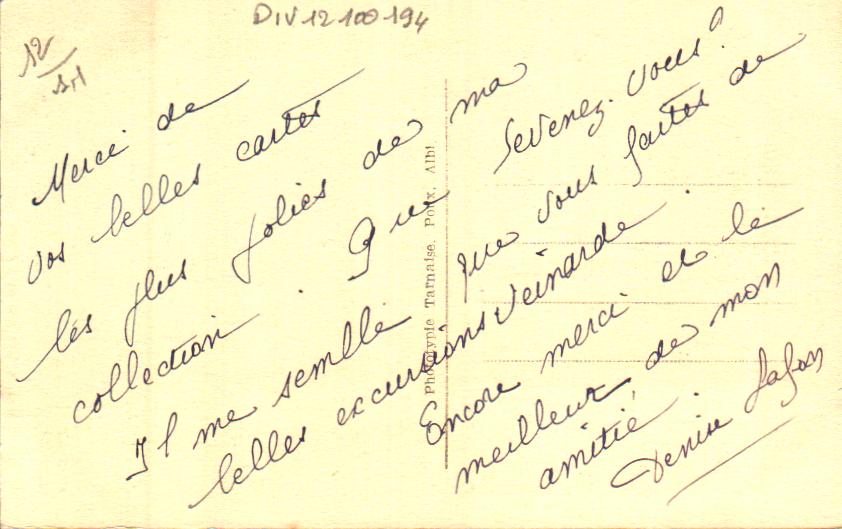 DIV 12 100 194
12
Merci de
vos belles cartes
les plus jolies de ma
collection. Que devenez-vous?
Il me semble que vous faites de
belles excursions veinarde.
Encore merci et le
meilleur de mon
amitié.
Denise Lafon
Phototypie Tarnaise. Poux, Albi.